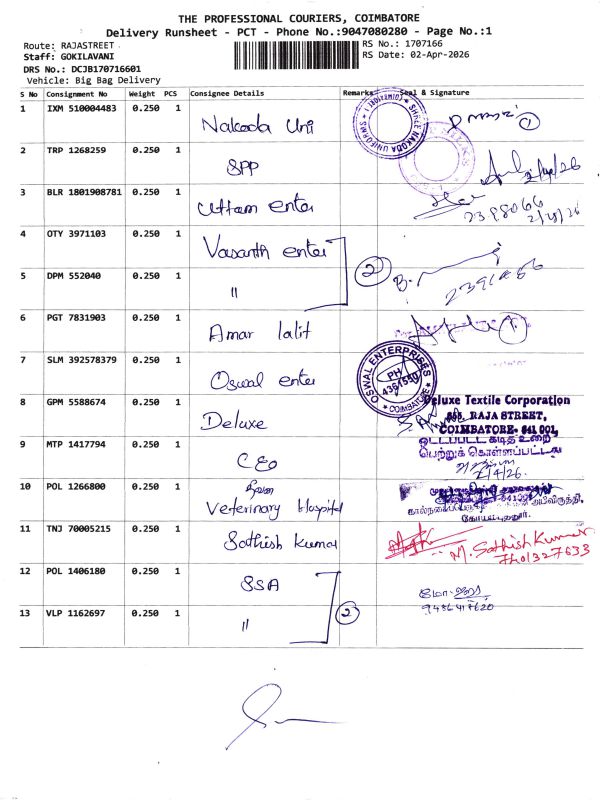 THE PROFESSIONAL COURIERS, COIMBATORE
Delivery Runsheet - PCT - Phone No.:9047080280 - Page No.:1
Route: RAJASTREET
RS No.: 1707166
Staff: GOKILAVANI
RS Date: 02-Apr-2026
DRS No.: DCJB170716601
Vehicle: Big Bag Delivery
S No Consignment No Weight PCS Consignee Details Remarks Seal & Signature
1 IXM 510004483 0.250 1 Nakoda Uni
SHREE NAKODA UNIFORMS COIMBATORE-1
2 TRP 1268259 0.250 1 SPP
3 BLR 1801908781 0.250 1 Uttam enter
2398066
4 OTY 3971103 0.250 1 Vasanth enter
2
5 DPM 552040 0.250 1 "
6 PGT 7831903 0.250 1 Amar lalit
7 SLM 392578379 0.250 1 Oswal enter
OSWAL ENTERPRISES PH 4391550 COIMBATORE
8 GPM 5588674 0.250 1 Deluxe
Deluxe Textile Corporation
RAJA STREET,
COIMBATORE- 641 001.
9 MTP 1417794 0.250 1 CEO
ஒட்டப்பட்ட கடித உறை
பெற்றுக் கொள்ளப்பட்டது
2/4/26.
10 POL 1266800 0.250 1 Veterinary Hospital
கோயமுத்தூர்.
11 TNJ 70005215 0.250 1 Sathish Kumar
M. Sathish Kumar
7401327633
12 POL 1406180 0.250 1 SSA
9486417620
13 VLP 1162697 0.250 1 "
2